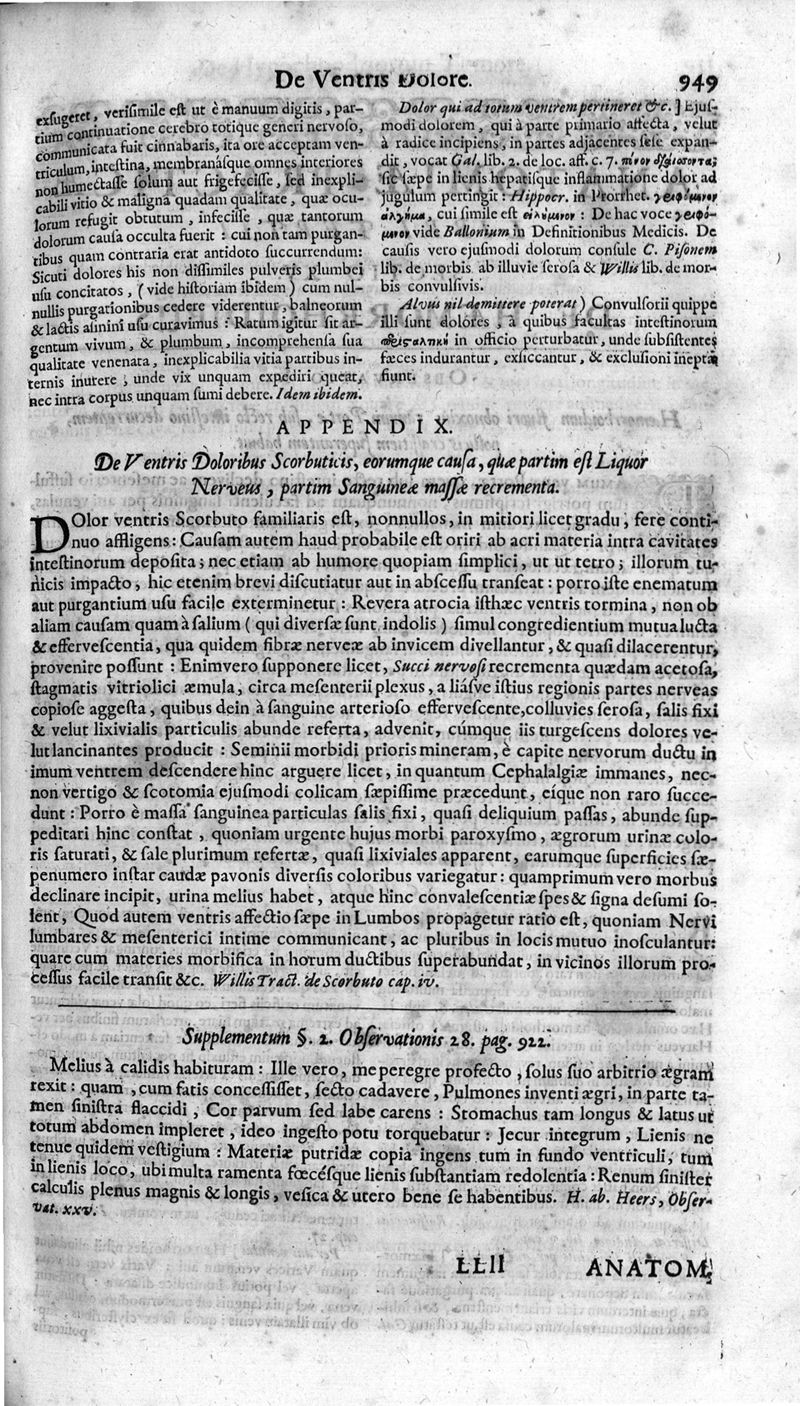 De Ventris Dolore. 949
exsugeret, verisimile est ut è manuum digitis, par-
tium continuatione cerebro totique generi nervoso,
communicata fuit cinnabaris, ita ore acceptam ven-
triculum, intestina, membranásque omnes interiores
non humectasse solum aut frigefecisse, sed inexpli-
cabili vitio & maligna quadam qualitate, quæ ocu-
lorum refugit obtutum, infecisse, quæ tantorum
dolorum causa occulta fuerit : cui non tam purgan-
tibus quam contraria erat antidoto succurrendum:
Sicuti dolores his non dissimiles pulveris plumbei
usu concitatos, ( vide historiam ibidem ) cum nul-
nullis purgationibus cedere viderentur, balneorum
& lactis asinini usu curavimus : Ratum igitur sit ar-
gentum vivum, & plumbum, incomprehensa sua
qualitate venenata, inexplicabilia vitia partibus in-
ternis inurere ; unde vix unquam expediri queat,
nec intra corpus unquam sumi debere. Idem ibidem.
Dolor qui ad totum ventrem pertineret &c. ] Ejus-
modi dolorem, qui à parte primario affecta, velut
à radice incipiens, in partes adjacentes sese expan-
dit, vocat Gal. lib. 2. de loc. aff. c. 7. πόνον
sic sæpe in lienis hepatisque inflammatione dolor ad
jugulum pertingit : Hippocr. in Prorrhet. γειφόμενον
ἄλγημα, cui simile est εἰλύμενον : De hac voce γειφό-
μενον vide Ballonium in Definitionibus Medicis. De
causis vero ejusmodi dolorum consule C. Pisonem
lib. de morbis ab illuvie serosa & Willis lib. de mor-
bis convulsivis.
Alvus nil demittere poterat ) Convulsorii quippe
illi sunt dolores, à quibus facultas intestinorum
in officio perturbatur, unde subsistentes
fæces indurantur, exsiccantur, & exclusioni ineptæ
fiunt.
APPENDIX.
De Ventris Doloribus Scorbuticis, eorumque causa, quæ partim est Liquor
Nerveus, partim Sanguineæ massæ recrementa.
DOlor ventris Scorbuto familiaris est, nonnullos, in mitiori licet gradu, fere conti-
nuo affligens : Causam autem haud probabile est oriri ab acri materia intra cavitates
intestinorum deposita; nec etiam ab humore quopiam simplici, ut ut tetro; illorum tu-
nicis impacto, hic etenim brevi discutiatur aut in abscessu transeat : porro iste enematum
aut purgantium usu facile exterminetur : Revera atrocia isthæc ventris tormina, non ob
aliam causam quam à salium ( qui diversæ sunt indolis ) simul congredientium mutua lucta
& effervescentia, qua quidem fibræ nerveæ ab invicem divellantur, & quasi dilacerentur,
provenire possunt : Enimvero supponere licet, Succi nervosi recrementa quædam acetosa,
stagmatis vitriolici æmula, circa mesenterii plexus, a liásve istius regionis partes nerveas
copiose aggesta, quibus dein à sanguine arterioso effervescente, colluvies serosa, salis fixi
& velut lixivialis particulis abunde referta, advenit, cúmque iis turgescens dolores ve-
lut lancinantes producit : Seminii morbidi prioris mineram, è capite nervorum ductu in
imum ventrem descendere hinc arguere licet, in quantum Cephalalgiæ immanes, nec-
non vertigo & scotomia ejusmodi colicam sæpissime præcedunt, eíque non raro succe-
dunt : Porro è massa sanguinea particulas salis fixi, quasi deliquium passas, abunde sup-
peditari hinc constat, quoniam urgente hujus morbi paroxysmo, ægrorum urinæ colo-
ris saturati, & sale plurimum refertæ, quasi lixiviales apparent, earumque superficies sæ-
penumero instar caudæ pavonis diversis coloribus variegatur : quamprimum vero morbus
declinare incipit, urina melius habet, atque hinc convalescentiæ spes & signa desumi so-
lent, Quod autem ventris affectio sæpe in Lumbos propagetur ratio est, quoniam Nervi
lumbares & mesenterici intime communicant, ac pluribus in locis mutuo inosculantur:
quare cum materies morbifica in horum ductibus superabundat, in vicinos illorum pro-
cessus facile transit &c. Willis Tract. de Scorbuto cap. iv.
Supplementum §. 2. Observationis 28. pag. 922.
Melius à calidis habituram : Ille vero, me peregre profecto, solus suo arbitrio ægram
rexit : quam, cum fatis concessisset, secto cadavere, Pulmones inventi ægri, in parte ta-
men sinistra flaccidi, Cor parvum sed labe carens : Stomachus tam longus & latus ut
totum abdomen impleret, ideo ingesto potu torquebatur : Jecur integrum, Lienis ne
tenue quidem vestigium : Materiæ putridæ copia ingens tum in fundo ventriculi, tum
in lienis loco, ubi multa ramenta fœcésque lienis substantiam redolentia : Renum sinister
calculis plenus magnis & longis, vesica & utero bene se habentibus. H. ab. Heers, Obser-
vat. xxv.
LLll ANATOM.